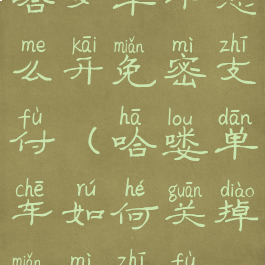 me kāi miǎn mì zhī
么开免密支
fù hā lou dān
付（哈喽单
chē rú hé guān diào
车如何关掉
miǎn mì zhī fù